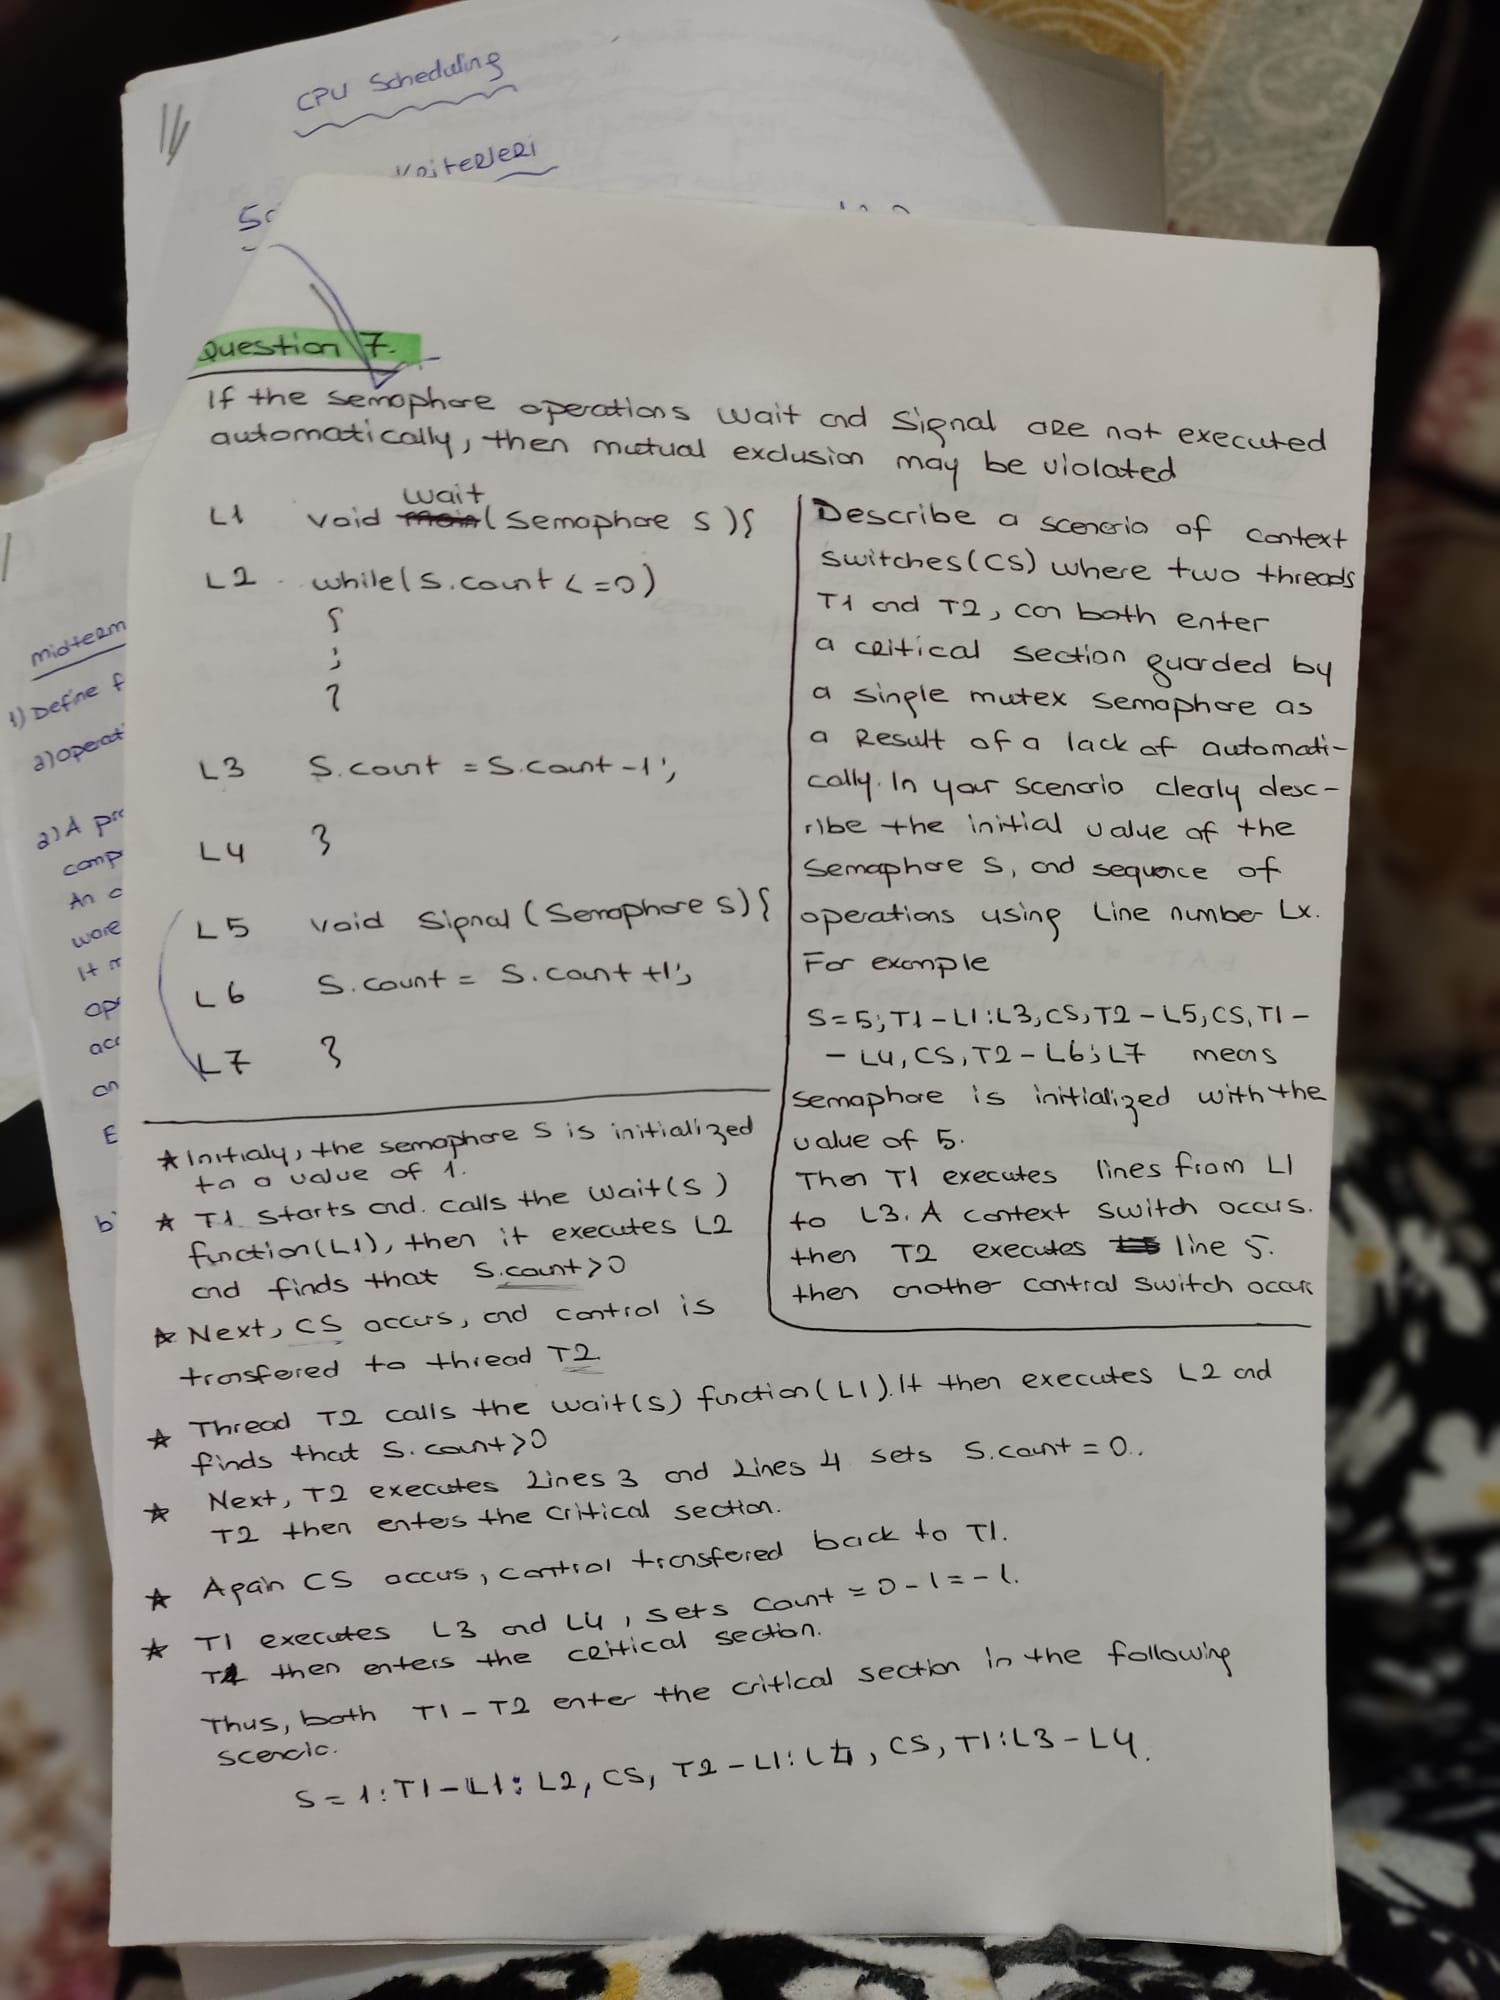 CPU Scheduling
Kriterleri
Question 7.
If the semaphore operations wait and Signal are not executed
automatically, then mutual exclusion may be violated
L1 void wait (Semaphore S){
L2 while(S.count <=0)
{
;
}
L3 S.count = S.count -1;
L4 }
L5 void Signal (Semaphore s){
L6 S.count = S.count +1;
L7 }
Describe a scenerio of context
switches(CS) where two threads
T1 and T2, can both enter
a critical section guarded by
a single mutex semaphore as
a Result of a lack of automati-
cally. In your scenario clearly desc-
ribe the initial value of the
semaphore S, and sequence of
operations using Line number Lx.
For example
S=5; T1-L1:L3, CS, T2-L5, CS, T1-
-L4, CS, T2-L6;L7 means
semaphore is initialized with the
value of 5.
Then T1 executes lines from L1
to L3. A context switch occurs.
then T2 executes line 5.
then another control switch occurs
★ Initialy, the semaphore S is initialized
to a value of 1.
★ T1 starts and. calls the wait(s)
function(L1), then it executes L2
and finds that S.count>0
★ Next, CS occurs, and control is
transfered to thread T2.
★ Thread T2 calls the wait(s) function(L1). It then executes L2 and
finds that S.count>0
★ Next, T2 executes Lines 3 and Lines 4 sets S.count = 0.
T2 then enters the critical section.
★ Again CS occus, control transfered back to T1.
★ T1 executes L3 and L4, sets count = 0-1=-1.
T1 then enters the critical section.
Thus, both T1-T2 enter the critical section in the following
scenario.
S=1: T1-L1: L2, CS, T2-L1: L4, CS, T1:L3-L4.
midterm
1) Define f
2) operat
2) A pro
comp
An
ware
It
op
acc
an
E
b